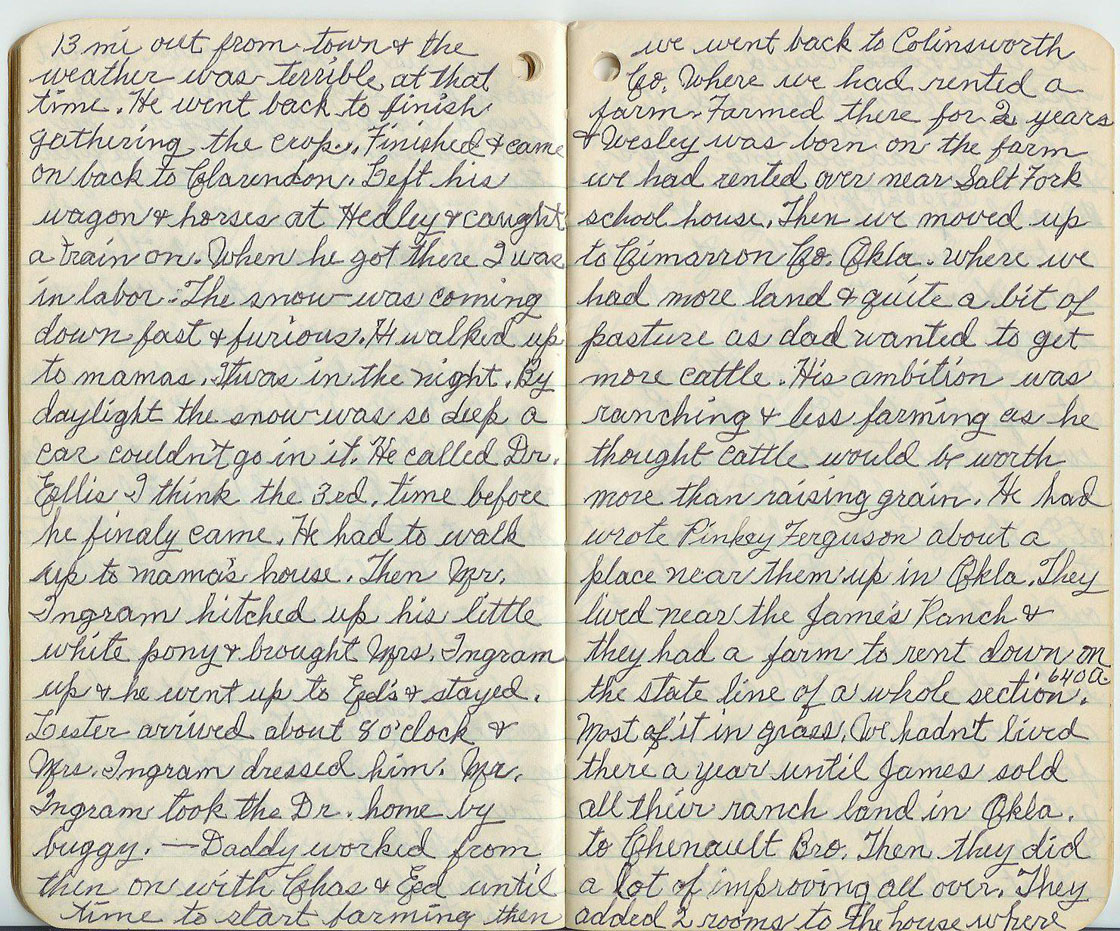 13 mi out from town & the
weather was terrible at that
time. He went back to finish
gathering the crop. Finished & came
on back to Clarendon. Left his
wagon & horses at Hedley & caught
a train on. When he got there I was
in labor. The snow was coming
down fast & furious. He walked up
to mamas. It was in the night. By
daylight the snow was so deep a
car couldn't go in it. He called Dr.
Ellis I think the 3ed. time before
he finaly came. He had to walk
up to mama's house. Then Mr.
Ingram hitched up his little
white pony & brought Mrs. Ingram
up & he went up to Ed's & stayed.
Lester arrived about 8 o'clock &
Mrs. Ingram dressed him. Mr.
Ingram took the Dr. home by
buggy. — Daddy worked from
then on with Chas & Ed until
time to start farming then
we went back to Colinsworth
Co. Where we had rented a
farm. Farmed there for 2 years
& Wesley was born on the farm
we had rented over near Salt Fork
school house. Then we moved up
to Cimarron Co. Okla. where we
had more land & quite a bit of
pasture as dad wanted to get
more cattle. His ambition was
ranching & less farming as he
thought cattle would be worth
more than raising grain. He had
wrote Pinkey Ferguson about a
place near them up in Okla. They
lived near the James Ranch &
they had a farm to rent down on
the state line of a whole section. 640 a.
Most of it in grass. We hadn't lived
there a year until James sold
all their ranch land in Okla.
to Chenault Bro. Then they did
a lot of improving all over. They
added 2 rooms to the house where